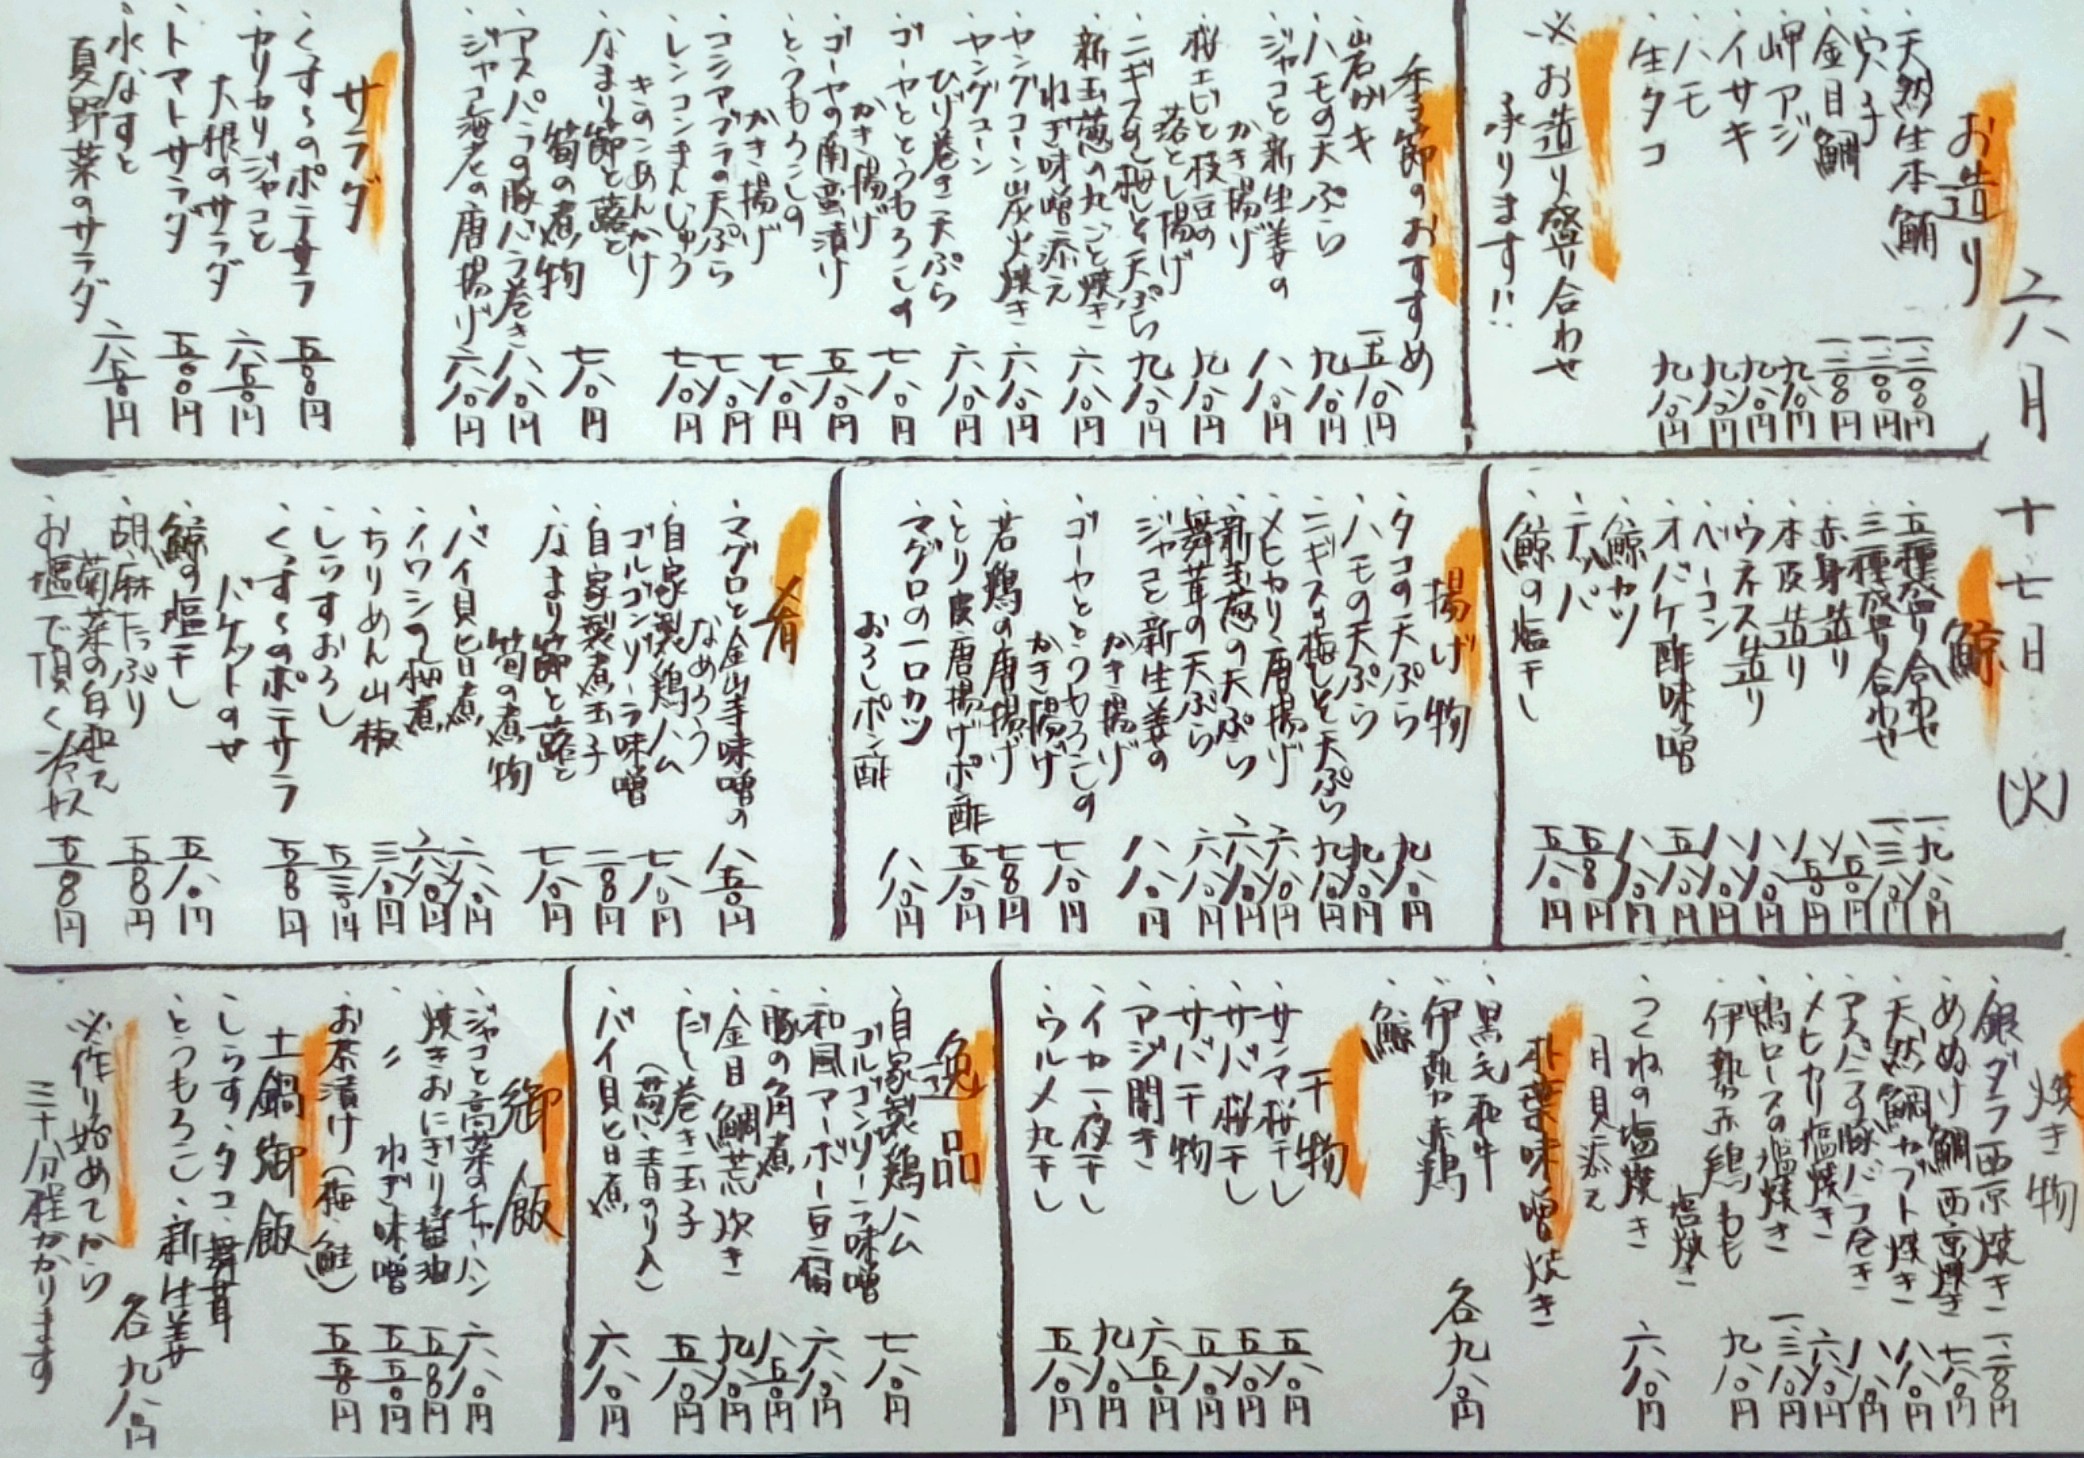 六月十七日(火)
お造り
・天然生本鮪 一、二〇〇円
・穴子 一、二〇〇円
・金目鯛 一、二〇〇円
・岬アジ 九八〇円
・イサキ 九八〇円
・ハモ 九八〇円
・生タコ 九八〇円
※お造り盛り合わせ
承ります!!
季節のおすすめ
・岩ガキ 一、五八〇円
・ハモの天ぷら 九八〇円
・ジャコと新生姜の
かき揚げ 八八〇円
・桜エビと枝豆の
落とし揚げ 九八〇円
・ニギスの梅しそ天ぷら 九八〇円
・新玉葱の丸ごと焼き
ねぎ味噌添え 六八〇円
・ヤングコーン炭火焼き 六八〇円
・ヤングコーン
ひげ巻き天ぷら 六八〇円
・ゴーヤととうもろこしの
かき揚げ 七八〇円
・ゴーヤの南蛮漬け 五八〇円
・とうもろこしの
かき揚げ 七八〇円
・コシアブラの天ぷら 七八〇円
・レンコンまんじゅう
きのこあんかけ 七八〇円
・なまり節と蕗と
筍の煮物 七八〇円
・アスパラの豚バラ巻き 八八〇円
・ジャコ海老の唐揚げ 六八〇円
サラダ
・くずしのポテサラ 五〇〇円
・カリカリジャコと
大根のサラダ 六五〇円
・トマトサラダ 五〇〇円
・水なすと
夏野菜のサラダ 六五〇円
鯨
・五種盛り合わせ 一、九八〇円
・三種盛り合わせ 一、三八〇円
・赤身造り 八五〇円
・本皮造り 八五〇円
・ウネス造り 八八〇円
・ベーコン 八八〇円
・オバケ酢味噌 五八〇円
・鯨カツ 八八〇円
・テッパ 五八〇円
・鯨の塩干し 五八〇円
揚げ物
・タコの天ぷら 九八〇円
・ハモの天ぷら 九八〇円
・ニギスの梅しそ天ぷら 九八〇円
・メヒカリ唐揚げ 六八〇円
・新玉葱の天ぷら 六八〇円
・舞茸の天ぷら 六八〇円
・ジャコと新生姜の
かき揚げ 八八〇円
・ゴーヤととうもろこしの
かき揚げ 七八〇円
・若鶏の唐揚げ 七八〇円
・とり皮唐揚げポン酢 五八〇円
・マグロの一口カツ
おろしポン酢 八八〇円
肴
・マグロと金山寺味噌の
なめろう 八五〇円
・自家製鶏ハム
ゴルゴンゾーラ味噌 七八〇円
・自家製煮玉子 二八〇円
・なまり節と蕗と
筍の煮物 七八〇円
・バイ貝旨煮 六八〇円
・イワシの梅煮 六八〇円
・ちりめん山椒 三八〇円
・しらすおろし 五三〇円
・くずしのポテサラ
バケットのせ 五五〇円
・鯨の塩干し 五八〇円
・胡麻たっぷり
菊菜の白和え 五五〇円
・お塩で頂く冷奴 五五〇円
焼き物
・銀ダラ西京焼き 一、二〇〇円
・めぬけ鯛西京焼き 七八〇円
・天然鯛カブト焼き 八八〇円
・アスパラの豚バラ巻き 八八〇円
・メヒカリ塩焼き 六八〇円
・鴨ロースの塩焼き 一、三八〇円
・伊勢赤鶏もも
塩焼き 九八〇円
・つくねの塩焼き
月見添え 六八〇円
朴葉味噌焼き
・黒毛和牛
・伊勢赤鶏 各九八〇円
・鯨
干物
・サンマ桜干し 五八〇円
・サバ桜干し 五八〇円
・サバ干物 五八〇円
・アジ開き 六五〇円
・イカ一夜干し 九八〇円
・ウルメ丸干し 五八〇円
逸品
・自家製鶏ハム
ゴルゴンゾーラ味噌 七八〇円
・和風マーボー豆腐 六八〇円
・豚の角煮 八五〇円
・金目鯛荒炊き 九八〇円
・だし巻き玉子
(葱・青のり入) 五八〇円
・バイ貝旨煮 六八〇円
御飯
・ジャコと高菜のチャーハン 六八〇円
・焼きおにぎり醤油 五五〇円
・〃 ねぎ味噌 五五〇円
・お茶漬け(梅・鮭) 五五〇円
土鍋御飯
・しらす・タコ・舞茸
・とうもろこし・新生姜
各九八〇円
※作り始めてから
三十分程かかります